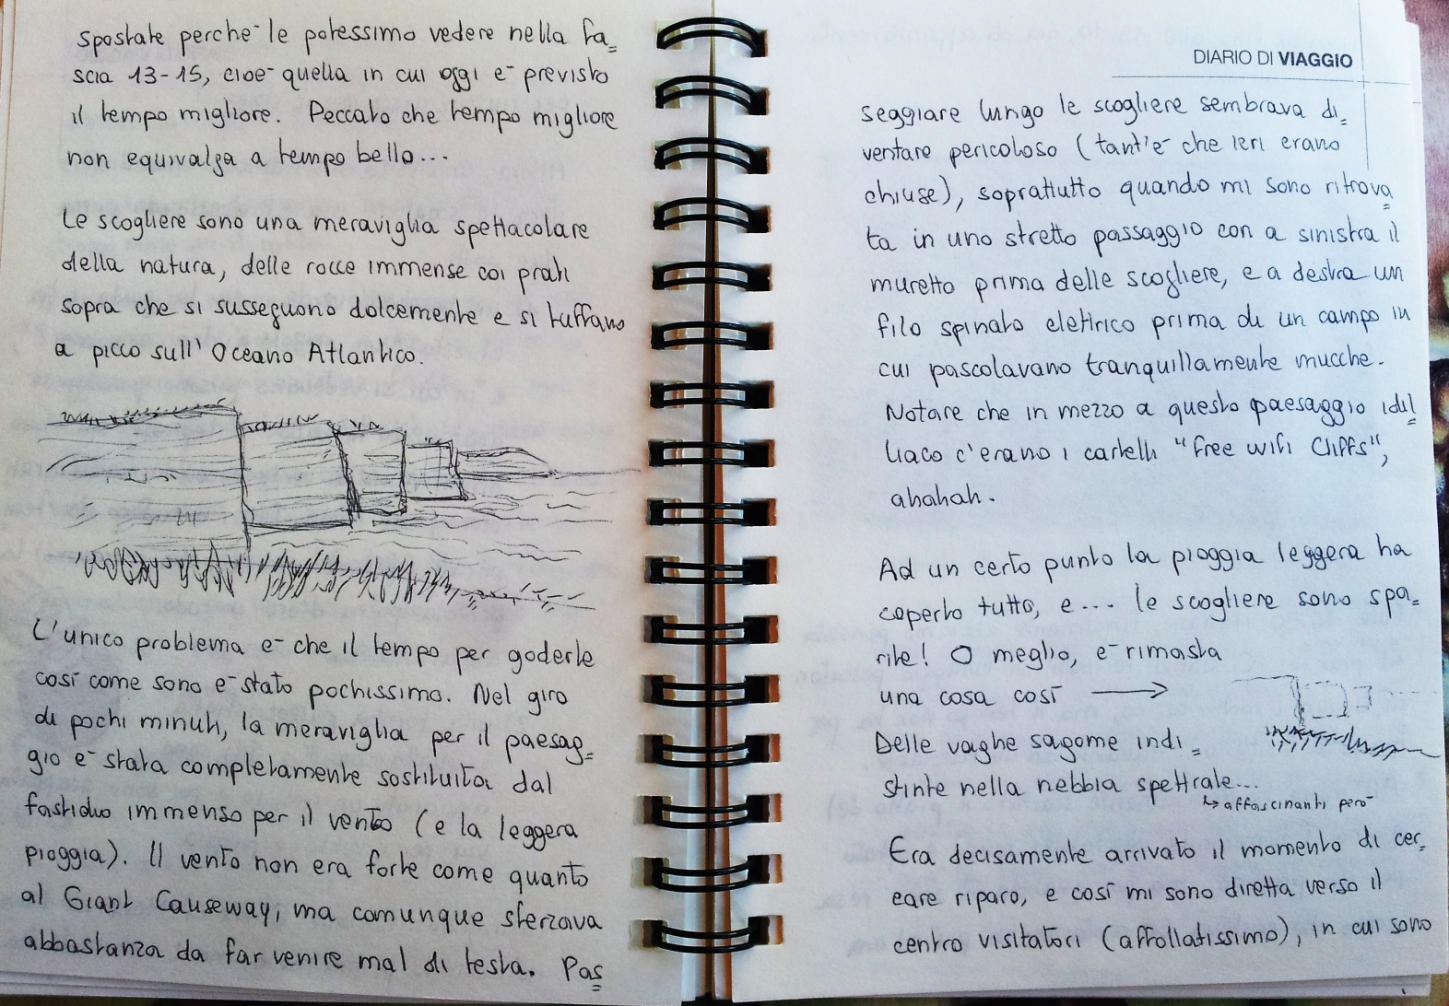 spostate perchè le potessimo vedere nella fa=
scia 13-15, cioè quella in cui oggi è previsto
il tempo migliore. Peccato che tempo migliore
non equivalga a tempo bello...
Le scogliere sono una meraviglia spettacolare
della natura, delle rocce immense coi prati
sopra che si susseguono dolcemente e si tuffano
a picco sull'Oceano Atlantico.
L'unico problema è che il tempo per goderle
così come sono è stato pochissimo. Nel giro
di pochi minuti, la meraviglia per il paesag=
gio è stata completamente sostituita dal
fastidio immenso per il vento (e la leggera
pioggia). Il vento non era forte come quanto
al Giant Causeway, ma comunque sferzava
abbastanza da far venire mal di testa. Pas=
DIARIO DI VIAGGIO
seggiare lungo le scogliere sembrava di=
ventare pericoloso (tant'è che ieri erano
chiuse), soprattutto quando mi sono ritrova=
ta in uno stretto passaggio con a sinistra il
muretto prima delle scogliere, e a destra un
filo spinato elettrico prima di un campo in
cui pascolavano tranquillamente mucche.
Notare che in mezzo a questo paesaggio idil=
liaco c'erano i cartelli "free wifi Cliffs",
ahahah.
Ad un certo punto la pioggia leggera ha
coperto tutto, e... le scogliere sono spa=
rite! O meglio, è rimasta
una cosa così →
Delle vaghe sagome indi=
stinte nella nebbia spettrale...
↳ affascinanti però
Era decisamente arrivato il momento di cer=
care riparo, e così mi sono diretta verso il
centro visitatori (affollatissimo), in cui sono